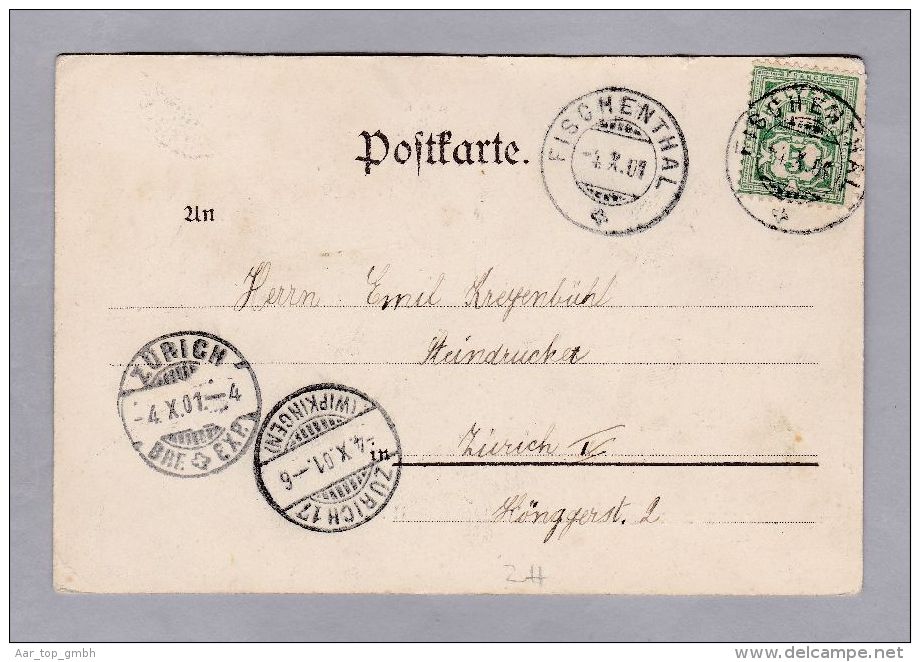 Postkarte.
FISCHENTHAL
-4.X.01
FISCHENTHAL
-4.X.01
5
An
Herrn Emil Kreyenbühl
Steindrucker
ZÜRICH
-4.X.01.-4
BRF. EXP.
(WIPKINGEN)
-4.X.01.-6
ZÜRICH 17
in Zürich
Hönggerst. 2
ZH
Aar_top_gmbh
www.delcampe.net